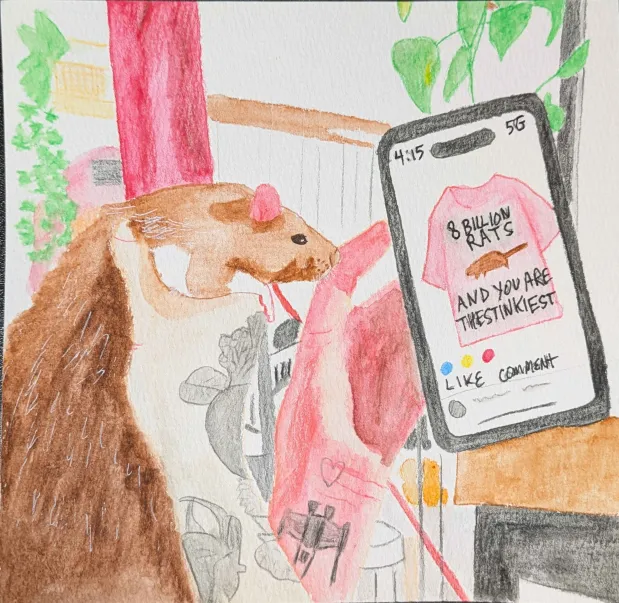 4:15 5G
8 BILLION
RATS
AND YOU ARE
THE STINKIEST
LIKE COMMENT